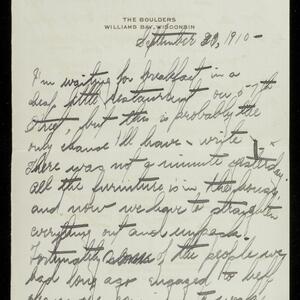 THE BOULDERS
WILLIAMS BAY, WISCONSIN
September 20, 1910 -
I'm waiting for breakfast, in a
cheap little restaurant on 57th
Street, but this is probably the
only chance I'll have to write
There was not a minute yesterday.
all the furniture is in the house
and now we have to straighten
everything out and unpack.
Fortunately some of the people we
had long ago engaged to help